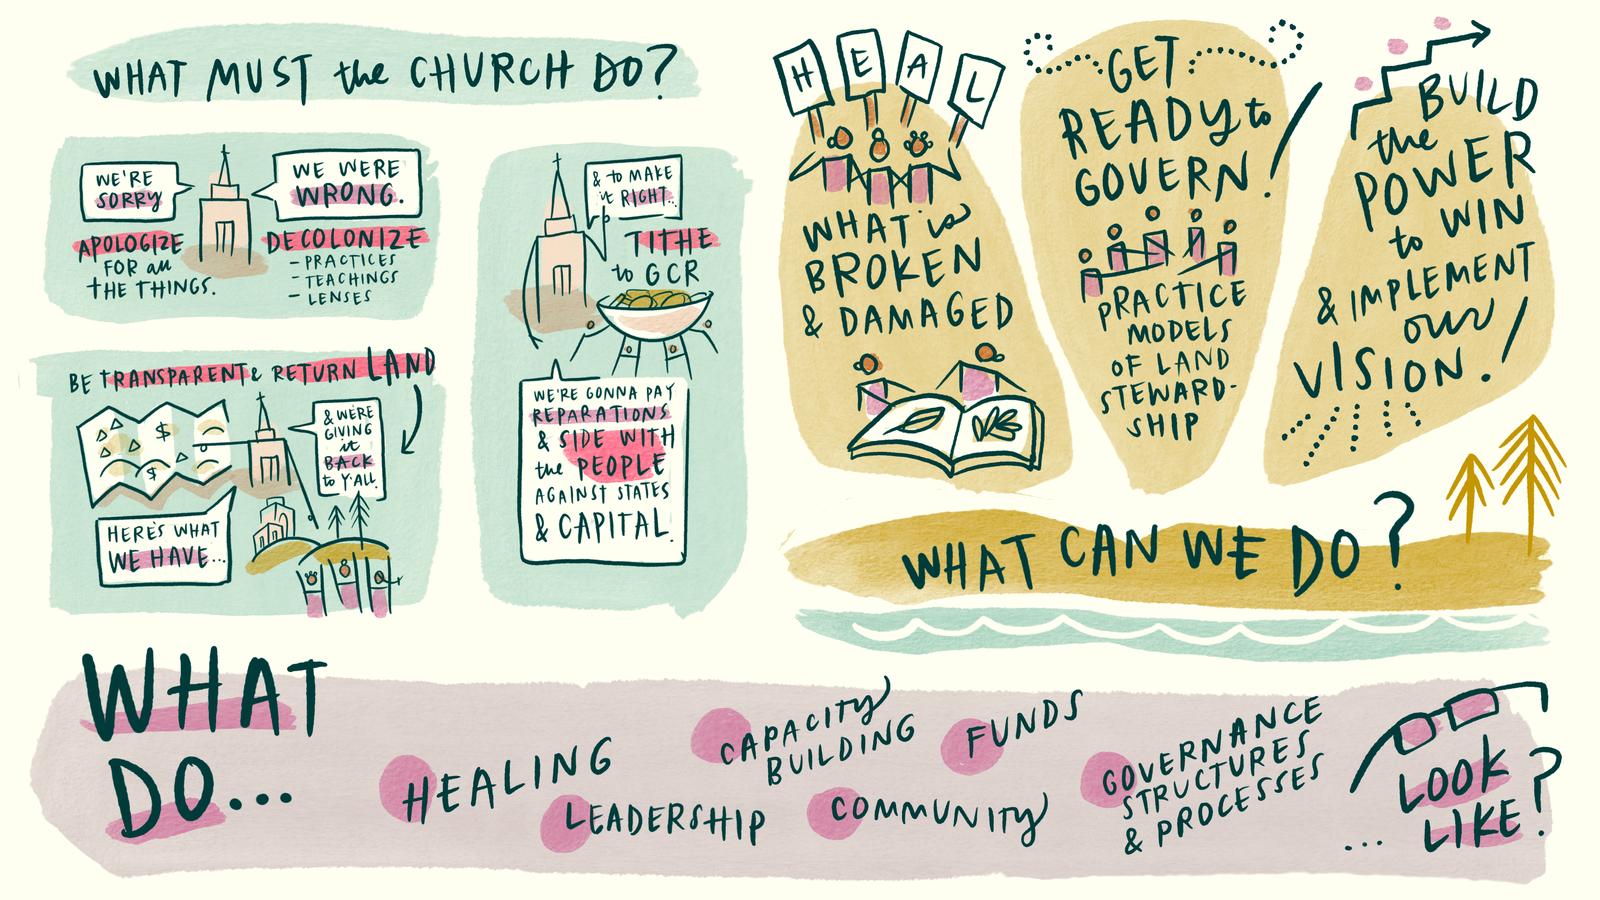 WHAT MUST the CHURCH DO?
WE'RE
SORRY
WE WERE
WRONG.
APOLOGIZE
FOR all
THE THINGS.
DECOLONIZE
- PRACTICES
- TEACHINGS
- LENSES
BE TRANSPARENT & RETURN LAND
$
$
& WE'RE
GIVING
it
BACK
to Y'ALL.
HERE'S WHAT
WE HAVE...
& to MAKE
it RIGHT...
TITHE
to GCR
WE'RE GONNA PAY
REPARATIONS
& SIDE WITH
the PEOPLE
AGAINST STATES
& CAPITAL.
HEAL
WHAT is
BROKEN
& DAMAGED
GET
READY to
GOVERN!
PRACTICE
MODELS
OF LAND
STEWARD-
SHIP
BUILD
the
POWER
to WIN
& IMPLEMENT
our
VISION!
WHAT CAN WE DO?
WHAT
DO...
HEALING
LEADERSHIP
CAPACITY
BUILDING
COMMUNITY
FUNDS
GOVERNANCE
STRUCTURES
& PROCESSES
... LOOK
LIKE?